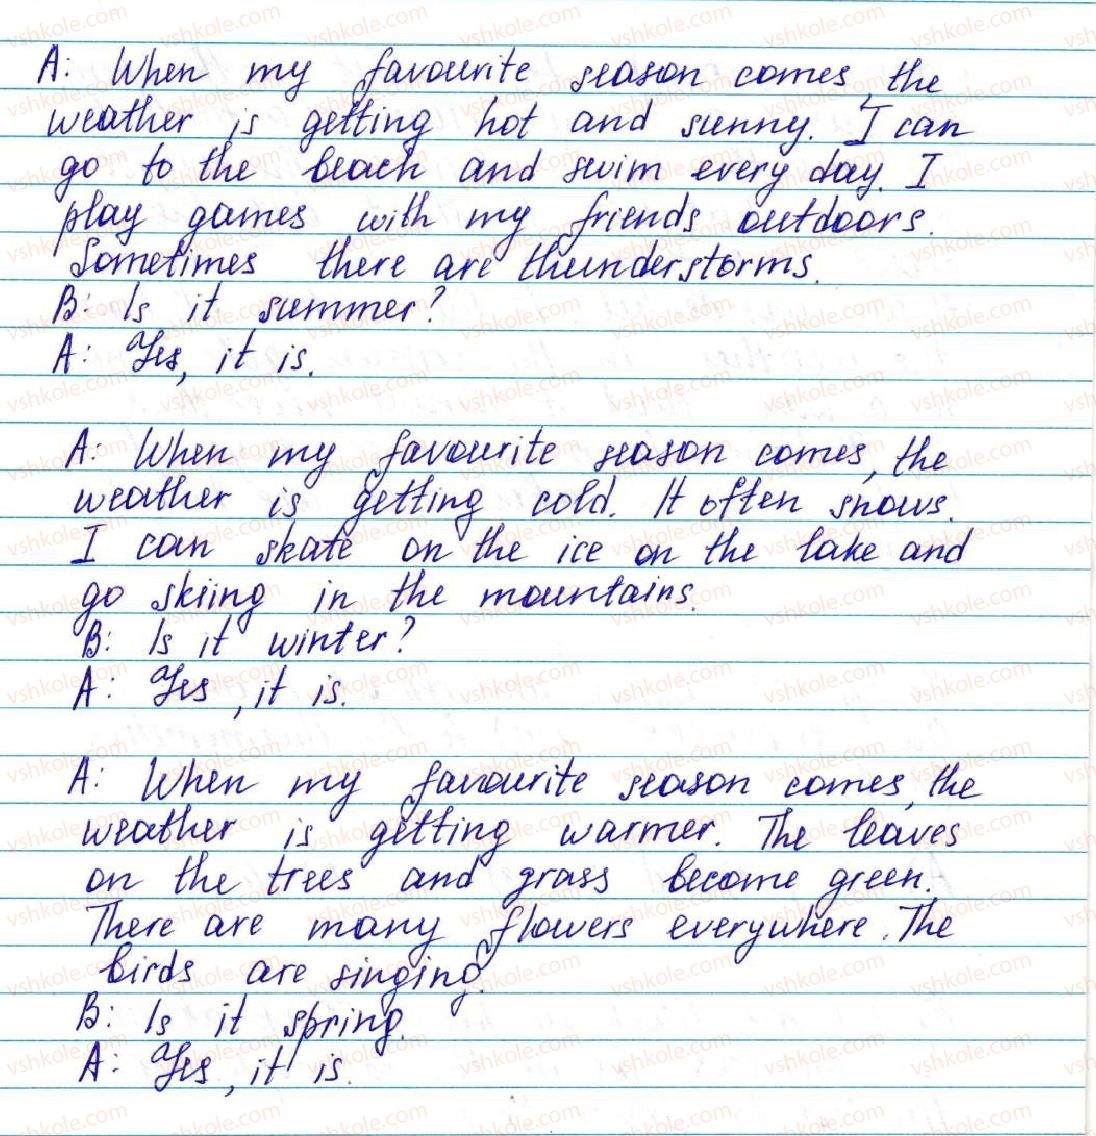 A: When my favourite season comes, the
weather is getting hot and sunny. I can
go to the beach and swim every day. I
play games with my friends outdoors.
Sometimes there are thunderstorms.
B: Is it summer?
A: Yes, it is.
A: When my favourite season comes, the
weather is getting cold. It often snows.
I can skate on the ice on the lake and
go skiing in the mountains.
B: Is it winter?
A: Yes, it is.
A: When my favourite season comes, the
weather is getting warmer. The leaves
on the trees and grass become green.
There are many flowers everywhere. The
birds are singing.
B: Is it spring.
A: Yes, it is.